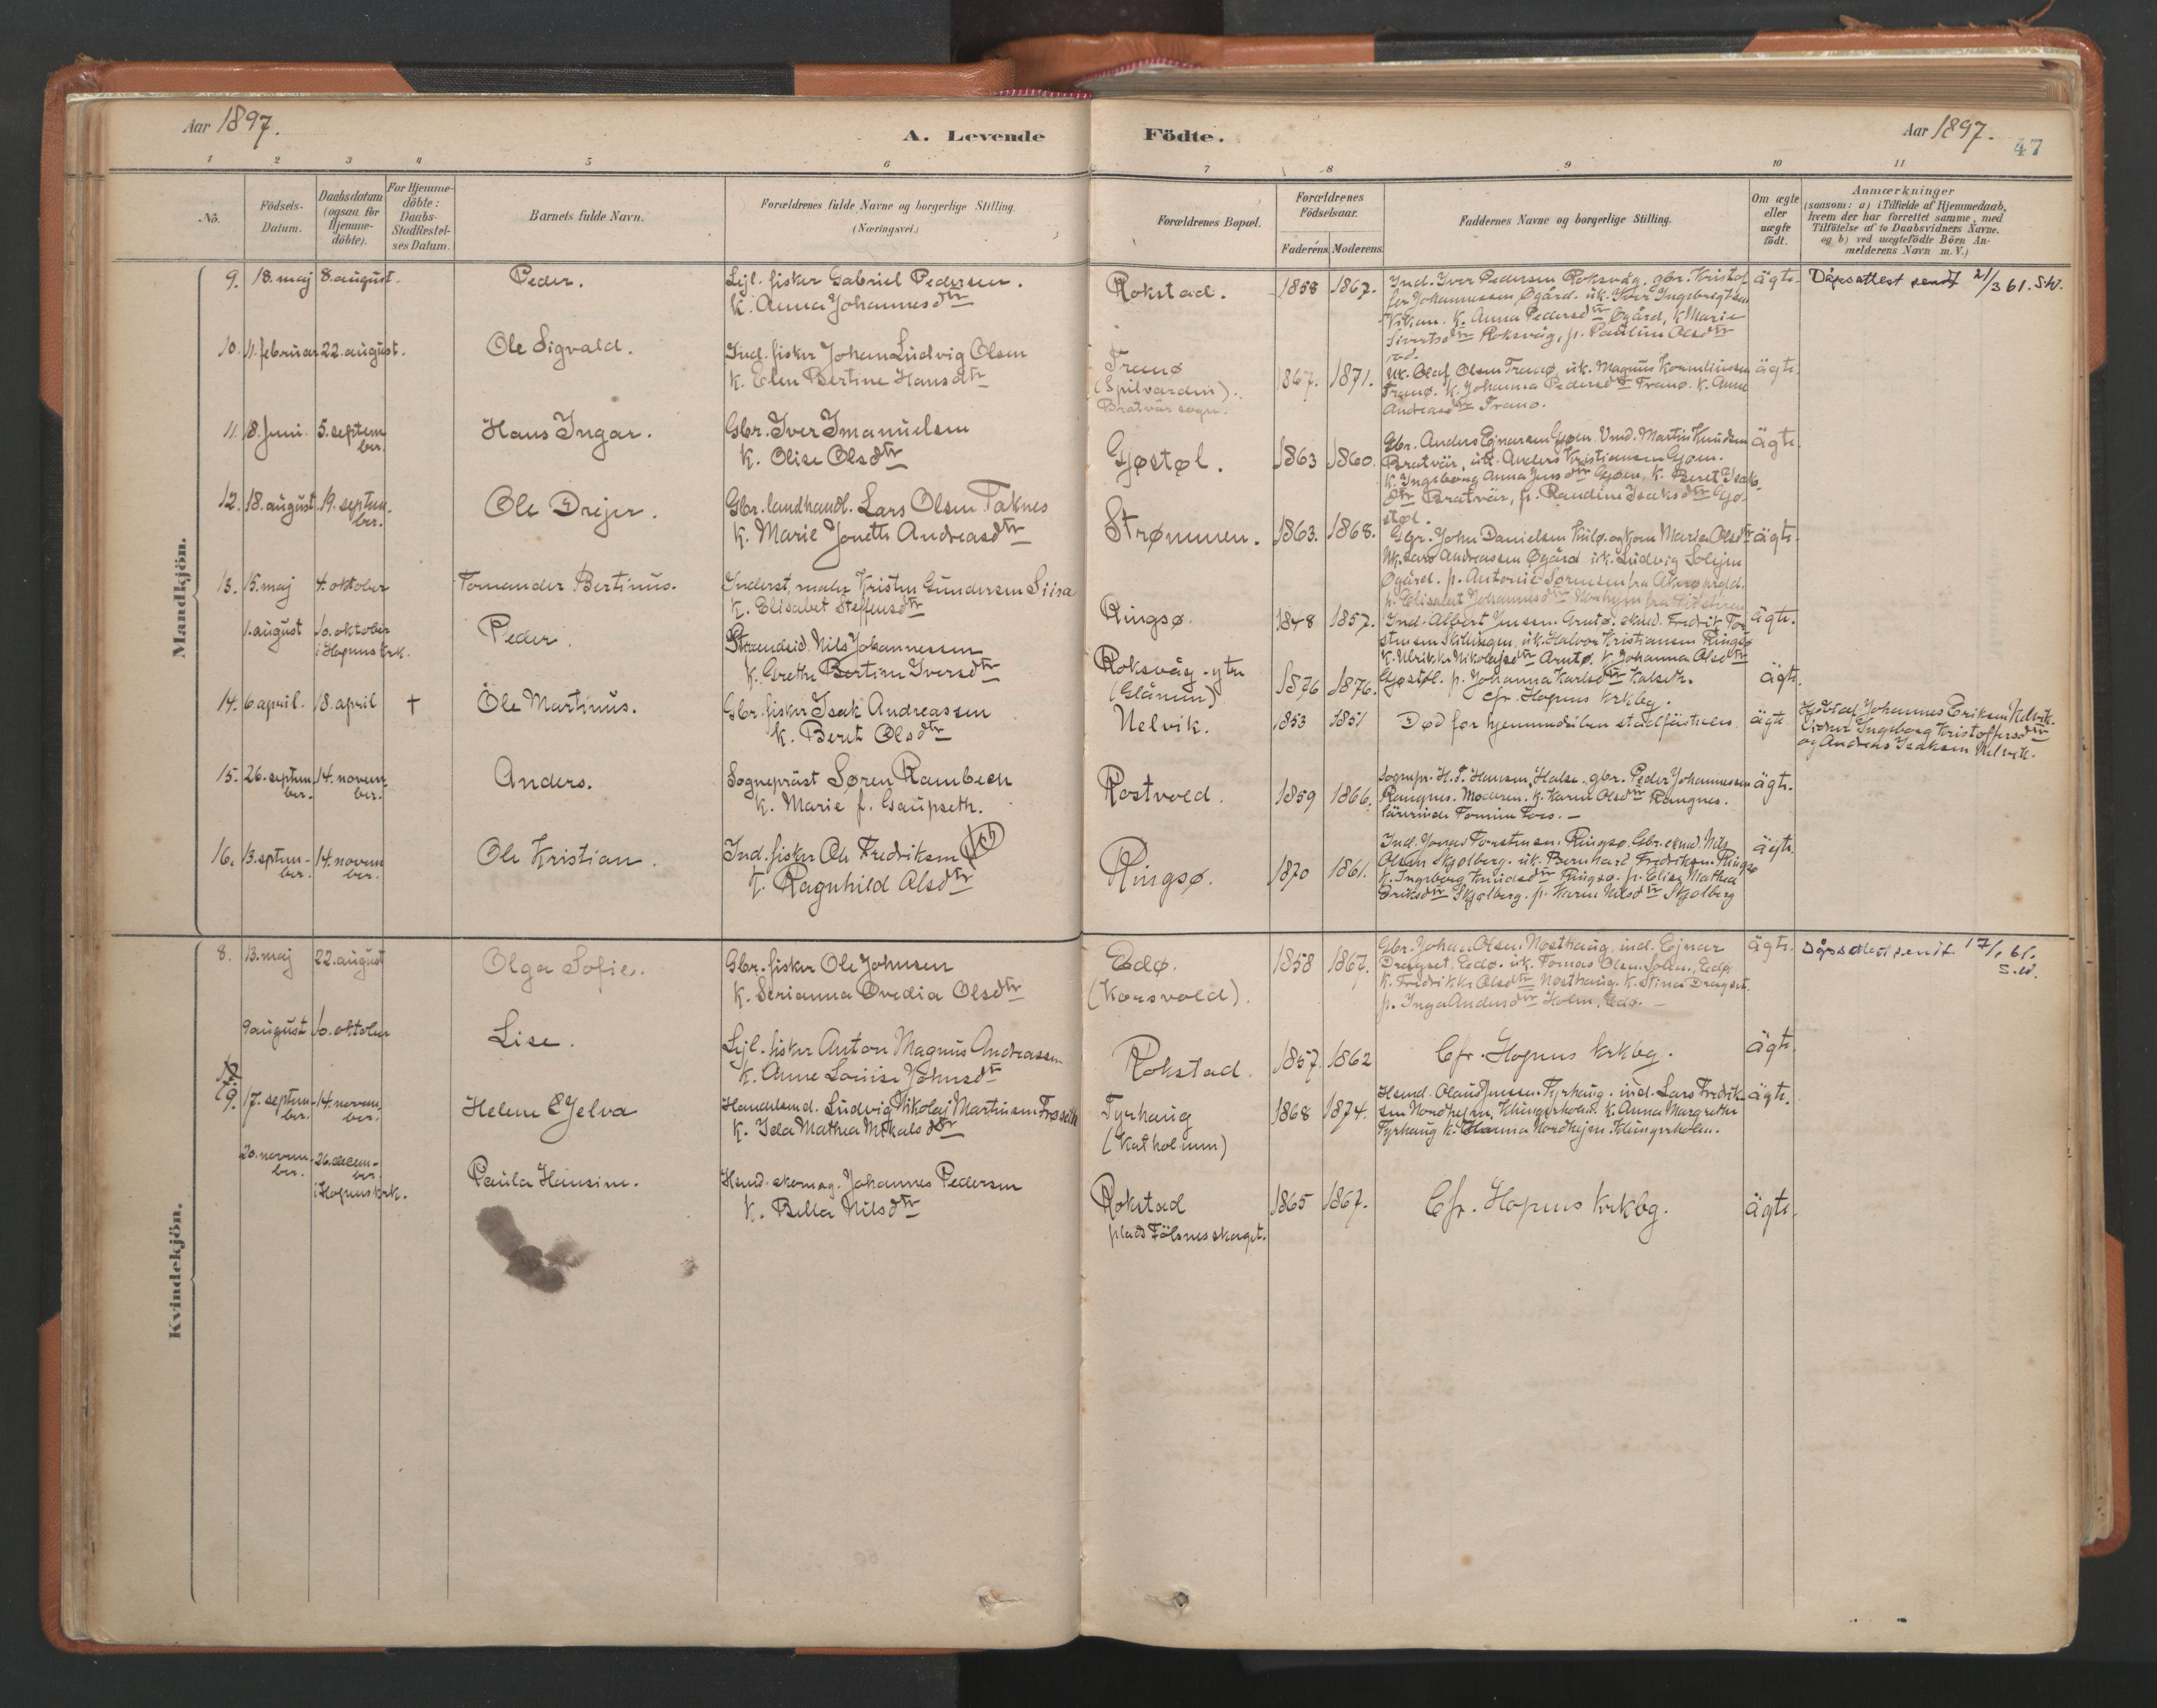 Aar 1897.
A. Levende
Födte.
Aar 1897.
47
1 2 3 4 5 6 7 8 9 10 11
No.
Födsels-
Datum.
Daabsdatum
(ogsaa for
Hjemme-
döbte).
For Hjemme-
döbte:
Daabs-
Stadfæstel-
ses Datum.
Barnets fulde Navn.
Forældrenes fulde Navne og borgerlige Stilling.
(Næringsvei.)
Forældrenes Bopæl.
Forældrenes
Födselsaar.
Faderens Moderens.
Faddernes Navne og borgerlige Stilling.
Om ægte
eller
uægte
födt.
Anmærkninger
(saasom: a) i Tilfælde af Hjemmedaab,
hvem der har forrettet samme, med
Tilföielse af to Daabsvidners Navne.
og b) ved uægtefödte Börn An-
melderens Navn m. V.)
Mandkjön.
9. 18. maj 8. august. Peder.
Lejl. fisker Gabriel Pedersen.
K. Anna Johannesdtr
Rokstad. 1858 1867.
Ind. Iver Pedersen Roksvåg, gbr. Kristof
fer Johannessen Øgård. uk. Iver Ingebrigtsen
Vikan. K. Anna Pedersdtr Øgård, K. Marie
Sivertsdtr Roksvåg, p. Pauline Olsdtr
ägte. Dåpsattest sendt 21/3 61. S.W.
10. 11. februar 22. august. Ole Sigvald.
Ind. fisker Johan Ludvig Olsen
K. Elen Bertine Hansdtr
Tranø
(Spilvarden).
Bratvär sogn.
1867. 1871.
uk. Olaf Olsen Tranø, uk. Magnus
Tranø. K. Johanna Pedersdtr Tranø. K. Anne
Andreasdtr Tranø.
ägte.
11. 18. Juni. 5. septem
ber. Hans Ingar.
Gbr. Iver Imanuelsen
K. Olise Olsdtr
Gjøstøl. 1863 1860.
Gbr. Anders Ejnarsen Gjøen. Martin Knudsen
Bratvär, uk. Anders Kristiansen Gjøen.
K. Ingeborg Anna Jensdtr Gjøen, K. Beret Isak
dtr Bratvär, p. Randine Isaksdtr Gjø-
støl.
ägte.
12. 18. august 19. septem.
ber. Ole Drejer.
Gbr. landhandl. Lars Olsen Taknes
K. Marie Jonette Andreasdtr
Strømmen. 1863. 1868.
Gbr. John Danielsen og kone Maria Olsdtr
uk. Lars Andreassen Øgård uk. Ludvig
Øgård. p. Antonie Sørensen fra
p. Elisabet Johannesdtr
ägte.
13. 15. maj 4. oktober Tomander Bertinus.
Inderst, maler Kristen Gundersen Siira
K. Elisabet Steffensdtr
Ringsø. 1848 1857.
Ind. Albert Jensen Arntø. Fredrik Tor
stensen Skillingen, uk. Halvor Kristiansen Ringsø
K. Ulrikke Nikolajsdtr Arntø. K. Johanna Olsdtr
Gjøstøl. p. Johanna Karlsdtr
ägte.
1. august 10. oktober
i Hopens krk. Peder.
Strandsid. Nils Johannessen
K. Grethe Bertine Iversdtr
Roksvåg - ytre
(Glåmen)
1876 1876.
Cfr. Hopens krkbg.
ägte.
14. 6 april. 18. april † Ole Martinus.
Gbr. fisker Isak Andreassen
K. Beret Olsdtr
Nelvik. 1853 1851
Død før hjemmedåben stadfästedes
ägte.
Johannes Eriksen Nelvik.
Vidner Ingeborg Kristoffersdtr
og Andreas Isaksen Nelvik.
15. 26. septem
ber. 14. novem
ber. Anders.
Sogneprest Søren Rambech
K. Marie f. Gaupseth.
Rostvold. 1859 1866.
Sognepr. H. T. Hansen, Halse. gbr. Peder Johannessen
Rangnes. Moderen. K. Karen Olsdtr Rangnes.
lärerinde Tomine Foss. —
ägte.
16. 13. septem-
ber. 14. novem
ber. Ole Kristian.
Ind. fisker Ole Fredriksen
K. Ragnhild Olsdtr
Ringsø. 1870 1861.
Ind. Jonas Torstensen. Ringsø. Gbr. Nils
Olsen Skjølberg. uk. Bernhard Fredriksen Ringsø
K. Ingeborg Knudsdtr Ringsø. p. Elise Mathea
Eriksdtr Skjølberg. p. Karen Nilsdtr Skjølberg
ägte.
Kvindekjön.
8. 13. maj 22. august Olga Sofie.
Gbr. fisker Ole Johnsen
K. Serianna Ovedia Olsdtr
Edø.
(Korsvold).
1858 1867.
Gbr. Johan Olsen Nesthaug, ind. Ejnar
Dragset, Edø. uk. Tomas Olsen Edø
K. Fredrikke Olsdtr Nesthaug. K. Stina Dragset.
p. Inga Andersdtr Holm, Edø. —
ägte. Dåpsattest sendt 17/1 61.
S.W.
9 august 10. oktober Lise.
Lejl. fisker Anton Magnus Andreassen
K. Anne Louise Johnsdtr
Rokstad. 1857. 1862
Cfr. Hopens krkbg.
ägte.
9. 17. septem-
ber. 14. novem.
ber. Helene Ejelva
Handelsmd. Ludvig Nikolaj Martinsen Frøseth
K. Ida Mathea Mikalsdtr
Tyrhaug
(Katholmen)
1868 1874.
Husmd. Olaus Jensen Tyrhaug. ind. Lars Fredrik
sen Nordhejm, Klingerholm. K. Anna Margrethe
Tyrhaug K. Hanna Nordhejm. Klingerholm.
ägte.
20. novem.
ber. 26. decem-
ber.
i Hopens krk. Paula Hansine.
Husmd. skomag. Johannes Pedersen
K. Bella Nilsdtr
Rokstad
plads Fölsnesskaget.
1865 1867.
Cfr. Hopens krkbg.
ägte.